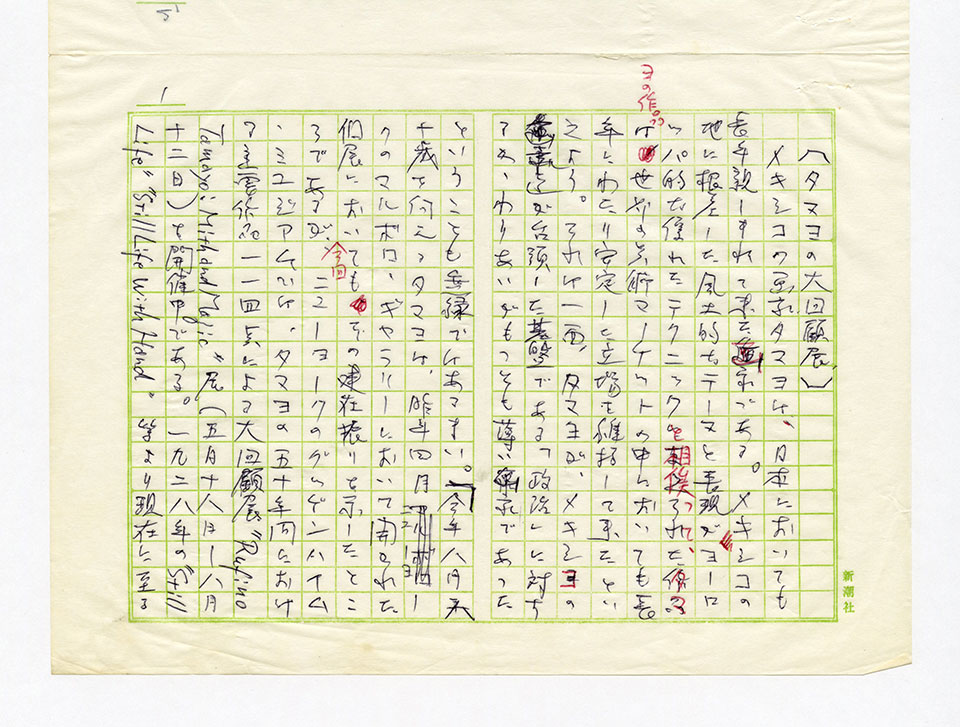 〈タマヨの大回顧展〉
メキシコの画家タマヨは、日本においても
長年親しまれて来た画家である。メキシコの
地に根差した風土的なテーマと表現がヨーロ
ッパ的な優れたテクニックと相俟って、タマ
ヨの作品
は世界の美術マーケットの中においても長
年にわたり安定した立場を維持して来たとい
えよう。それは一面、タマヨが、メキシコの
が台頭した基盤である「政治」に対し
てかゝわりあいがもっとも薄い画家であった
ということも無縁ではあるまい。「今年八月末
十歳を迎えるタマヨは、昨年四月ニューヨー
クのマルボロ・ギャラリーにおいて開かれた
個展においてもその健在振りを示したとこ
ろであるが、今回ニューヨークのグッゲンハイム
・ミュージアムでは、タマヨの五十年間におけ
る 一一四点による大回顧展"Rufino
Tamayo: Myth and Magic"展(五月十八日―八月
十二日)を開催中である。一九二八年の"Still
Life" "Still Life With Hand" 等より現在に至る
1
新潮社